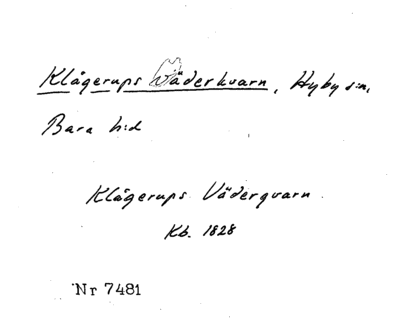 Klågerups Väderkvarn, Hyby s:n,
Bara h:d
Klågerups Väderqvarn
Kb. 1828
Nr 7481